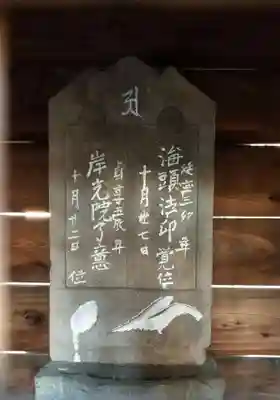 延宝三卯年
海頭法印覚位
十月廿七日
貞享五辰年
岸光院了意位
十月廿二日